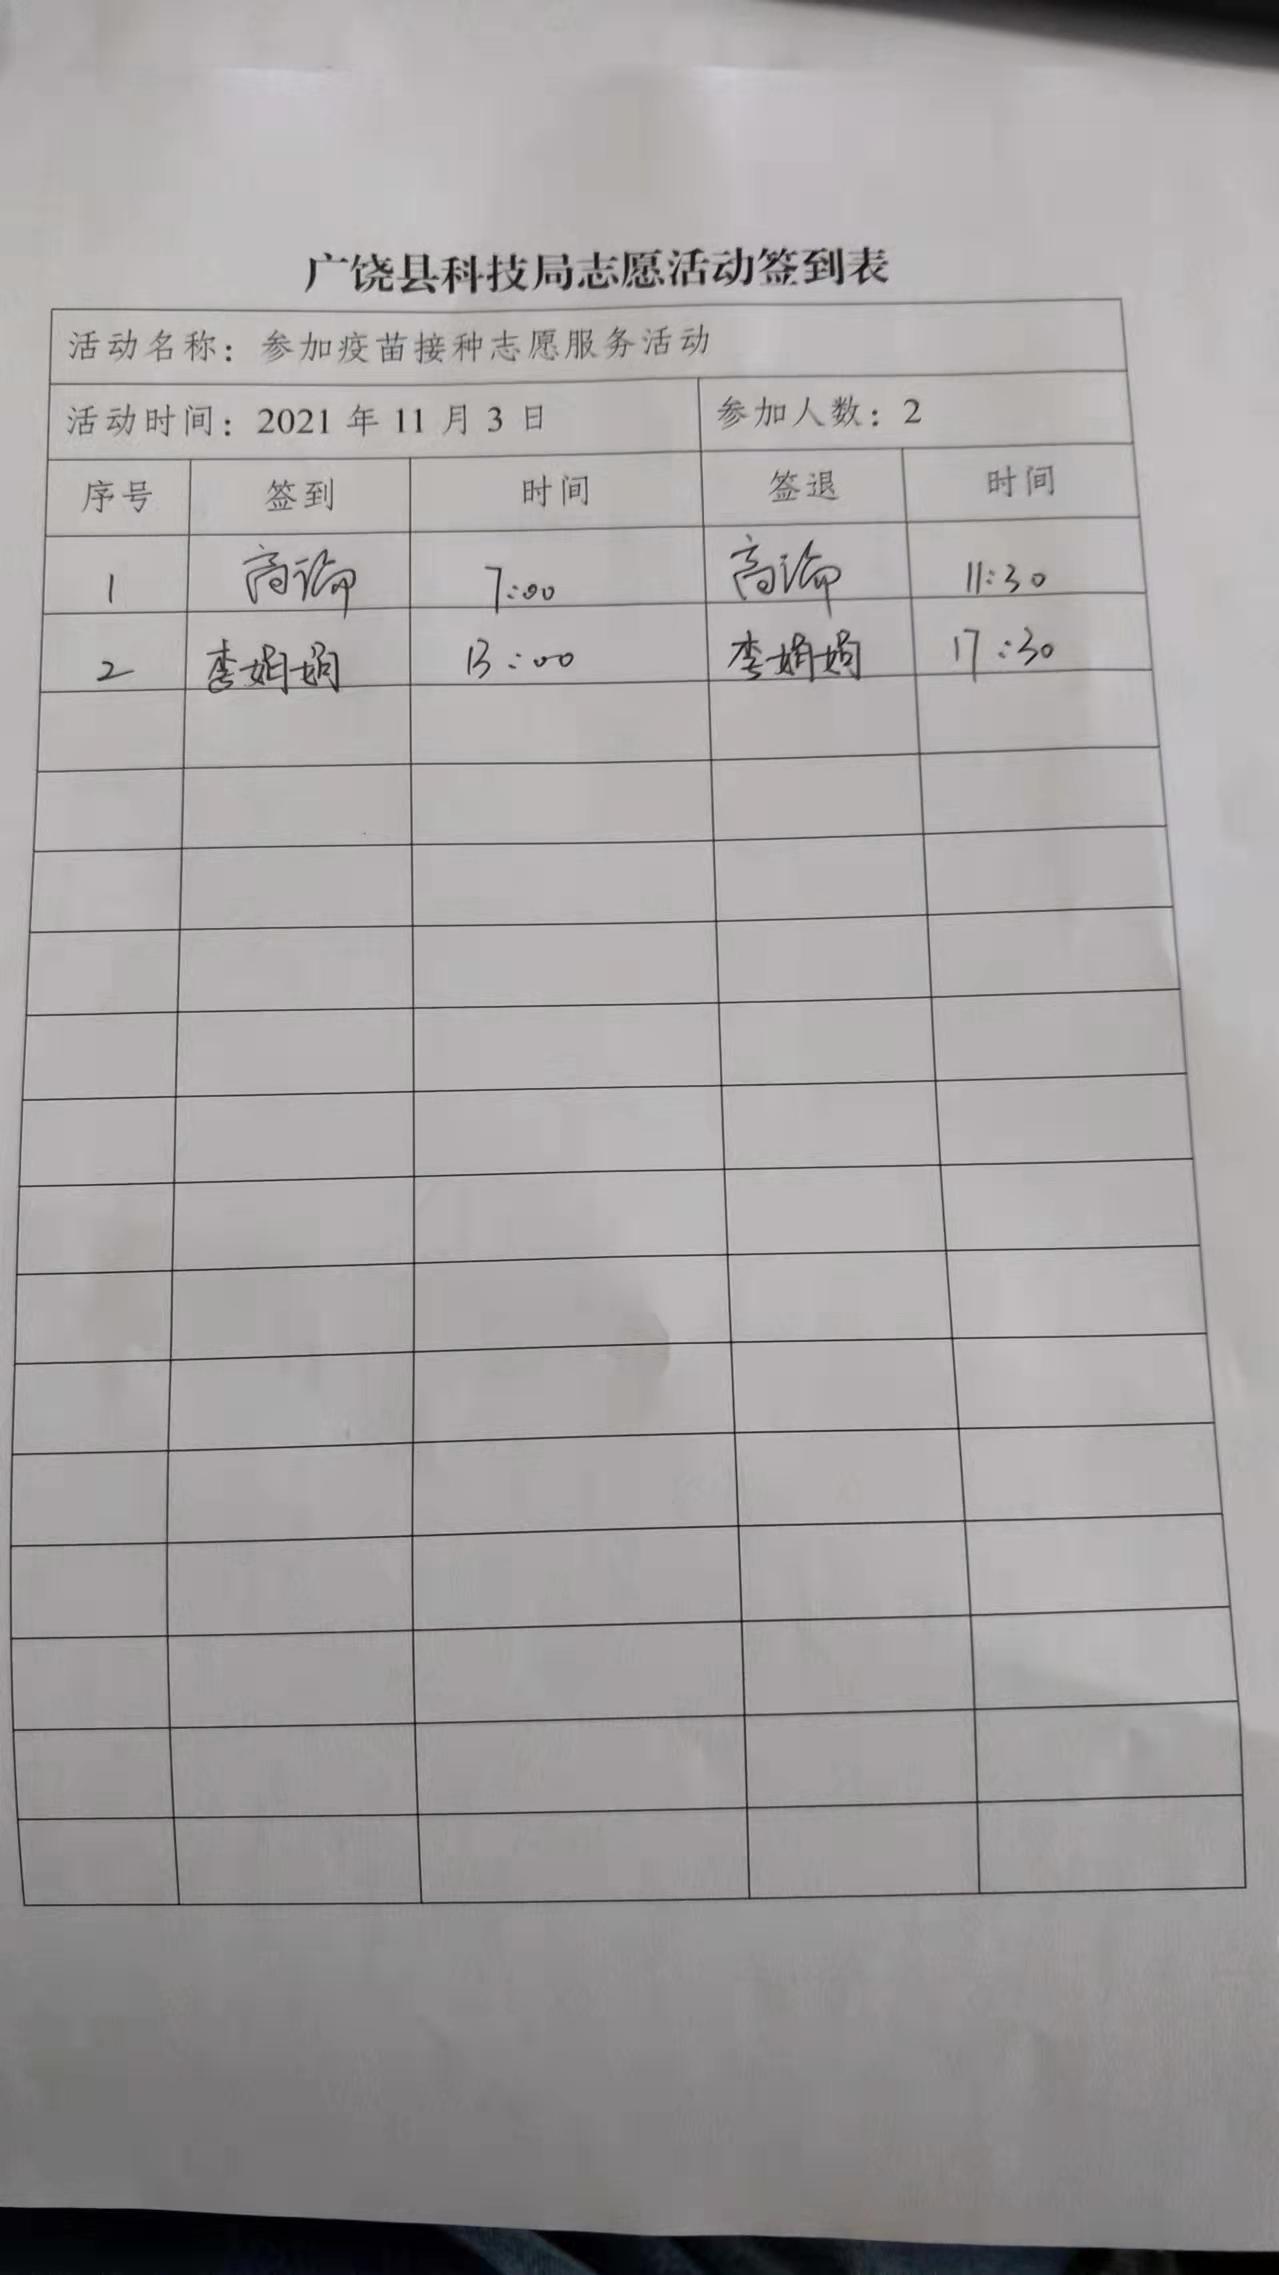 广饶县科技局志愿活动签到表
活动名称：参加疫苗接种志愿服务活动
活动时间：2021 年 11 月 3 日 参加人数：2
序号 签到 时间 签退 时间
1 高瑜 7:00 高瑜 11:30
2 李娟娟 13:00 李娟娟 17:30